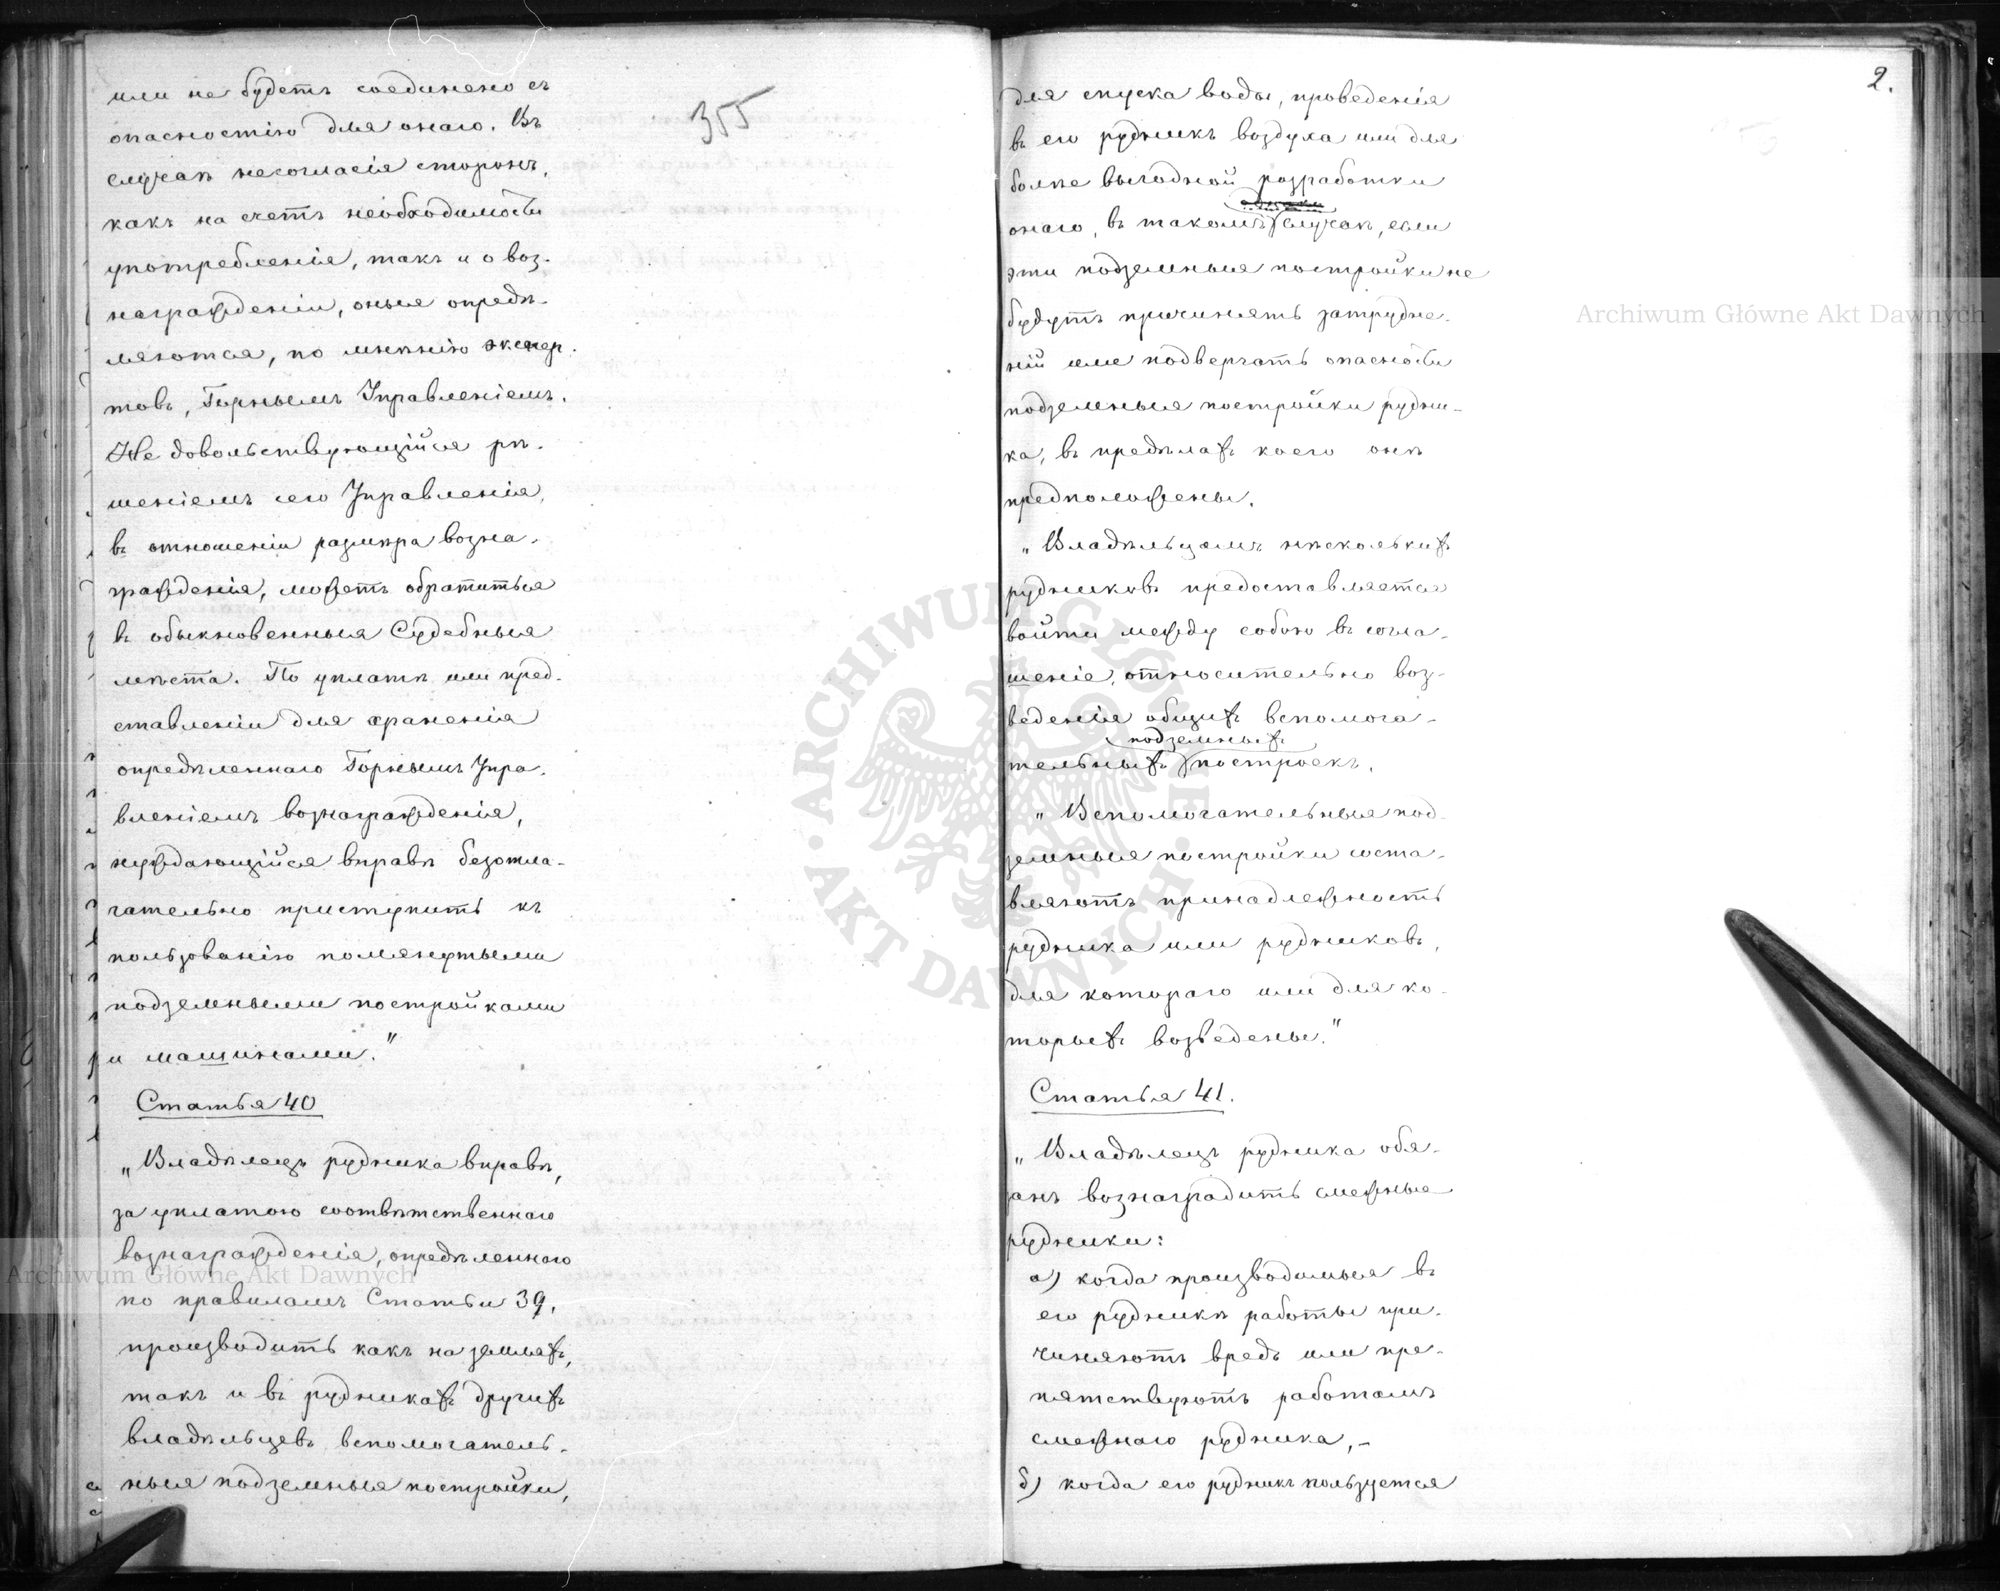 355
или не будетъ соединено съ
опасностію для онаго. Въ
случаѣ несогласія сторонъ,
какъ на счетъ необходимости
употребленія, такъ и о воз-
награжденіи, оныя опредѣ-
ляются, по мнѣнію экспер-
товъ, Горнымъ Управленіемъ.
Недовольствующійся рѣ-
шеніемъ сего Управленія,
въ отношеніи размѣра возна-
гражденія, можетъ обратиться
въ обыкновенныя Судебныя
мѣста. По уплатѣ или пред-
ставленіи для храненія
опредѣленнаго Горнымъ Упра-
вленіемъ вознагражденія,
нуждающійся вправѣ безотла-
гательно приступить къ
пользованію помянутыми
подземными постройками
и машинами."
Статья 40
„Владѣлецъ рудника вправѣ,
за уплатою соотвѣтственнаго
вознагражденія, опредѣленнаго
по правиламъ Статьи 39,
производить какъ на земляхъ,
такъ и въ рудникахъ другихъ
владѣльцевъ вспомогатель-
ныя подземныя постройки,
2.
для спуска воды, проведенія
въ его рудникъ воздуха или для
болѣе выгодной розработки
онаго, въ такомъ случаѣ, если
эти подземныя постройки не
будутъ причинять затрудне-
ній или подвергать опасности
подземныя постройки рудни-
ка, въ предѣлахъ коего онѣ
предположены.
„Владѣльцамъ нѣсколькихъ
рудниковъ предоставляется
войти между собою въ согла-
шеніе, относительно воз-
веденія общихъ вспомога-
подземныхъ
тельныхъ построекъ.
„Вспомогательныя под-
земныя постройки соста-
вляютъ принадлежность
рудника или рудниковъ,
для котораго или для ко-
торыхъ возведены."
Статья 41.
„Владѣлецъ рудника обя-
занъ вознаградить смежные
рудники:
а) когда производимыя въ
его рудникѣ работы при-
чиняютъ вредъ или пре-
пятствуютъ работамъ
смежнаго рудника,-
б) когда его рудникъ пользуется
Archiwum Główne Akt Dawnych
Archiwum Główne Akt Dawnych
ARCHIWUM GŁÓWNE · AKT DAWNYCH ·